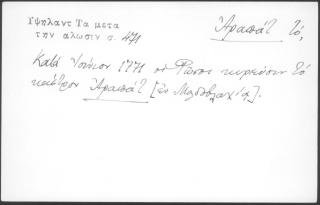 Ὑψηλαντ Τα μετα
την αλωσιν σ. 471
Ἀραπὰτ τό,
Κατά Ἰούνιον 1771 οἱ Ῥῶσοι κυριεύουν τό
κάστρον Ἀραπὰτ [ἐν Μολδοβλαχίᾳ].